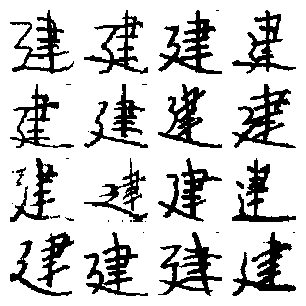 建建建建
建建建建
建建建建
建建建建